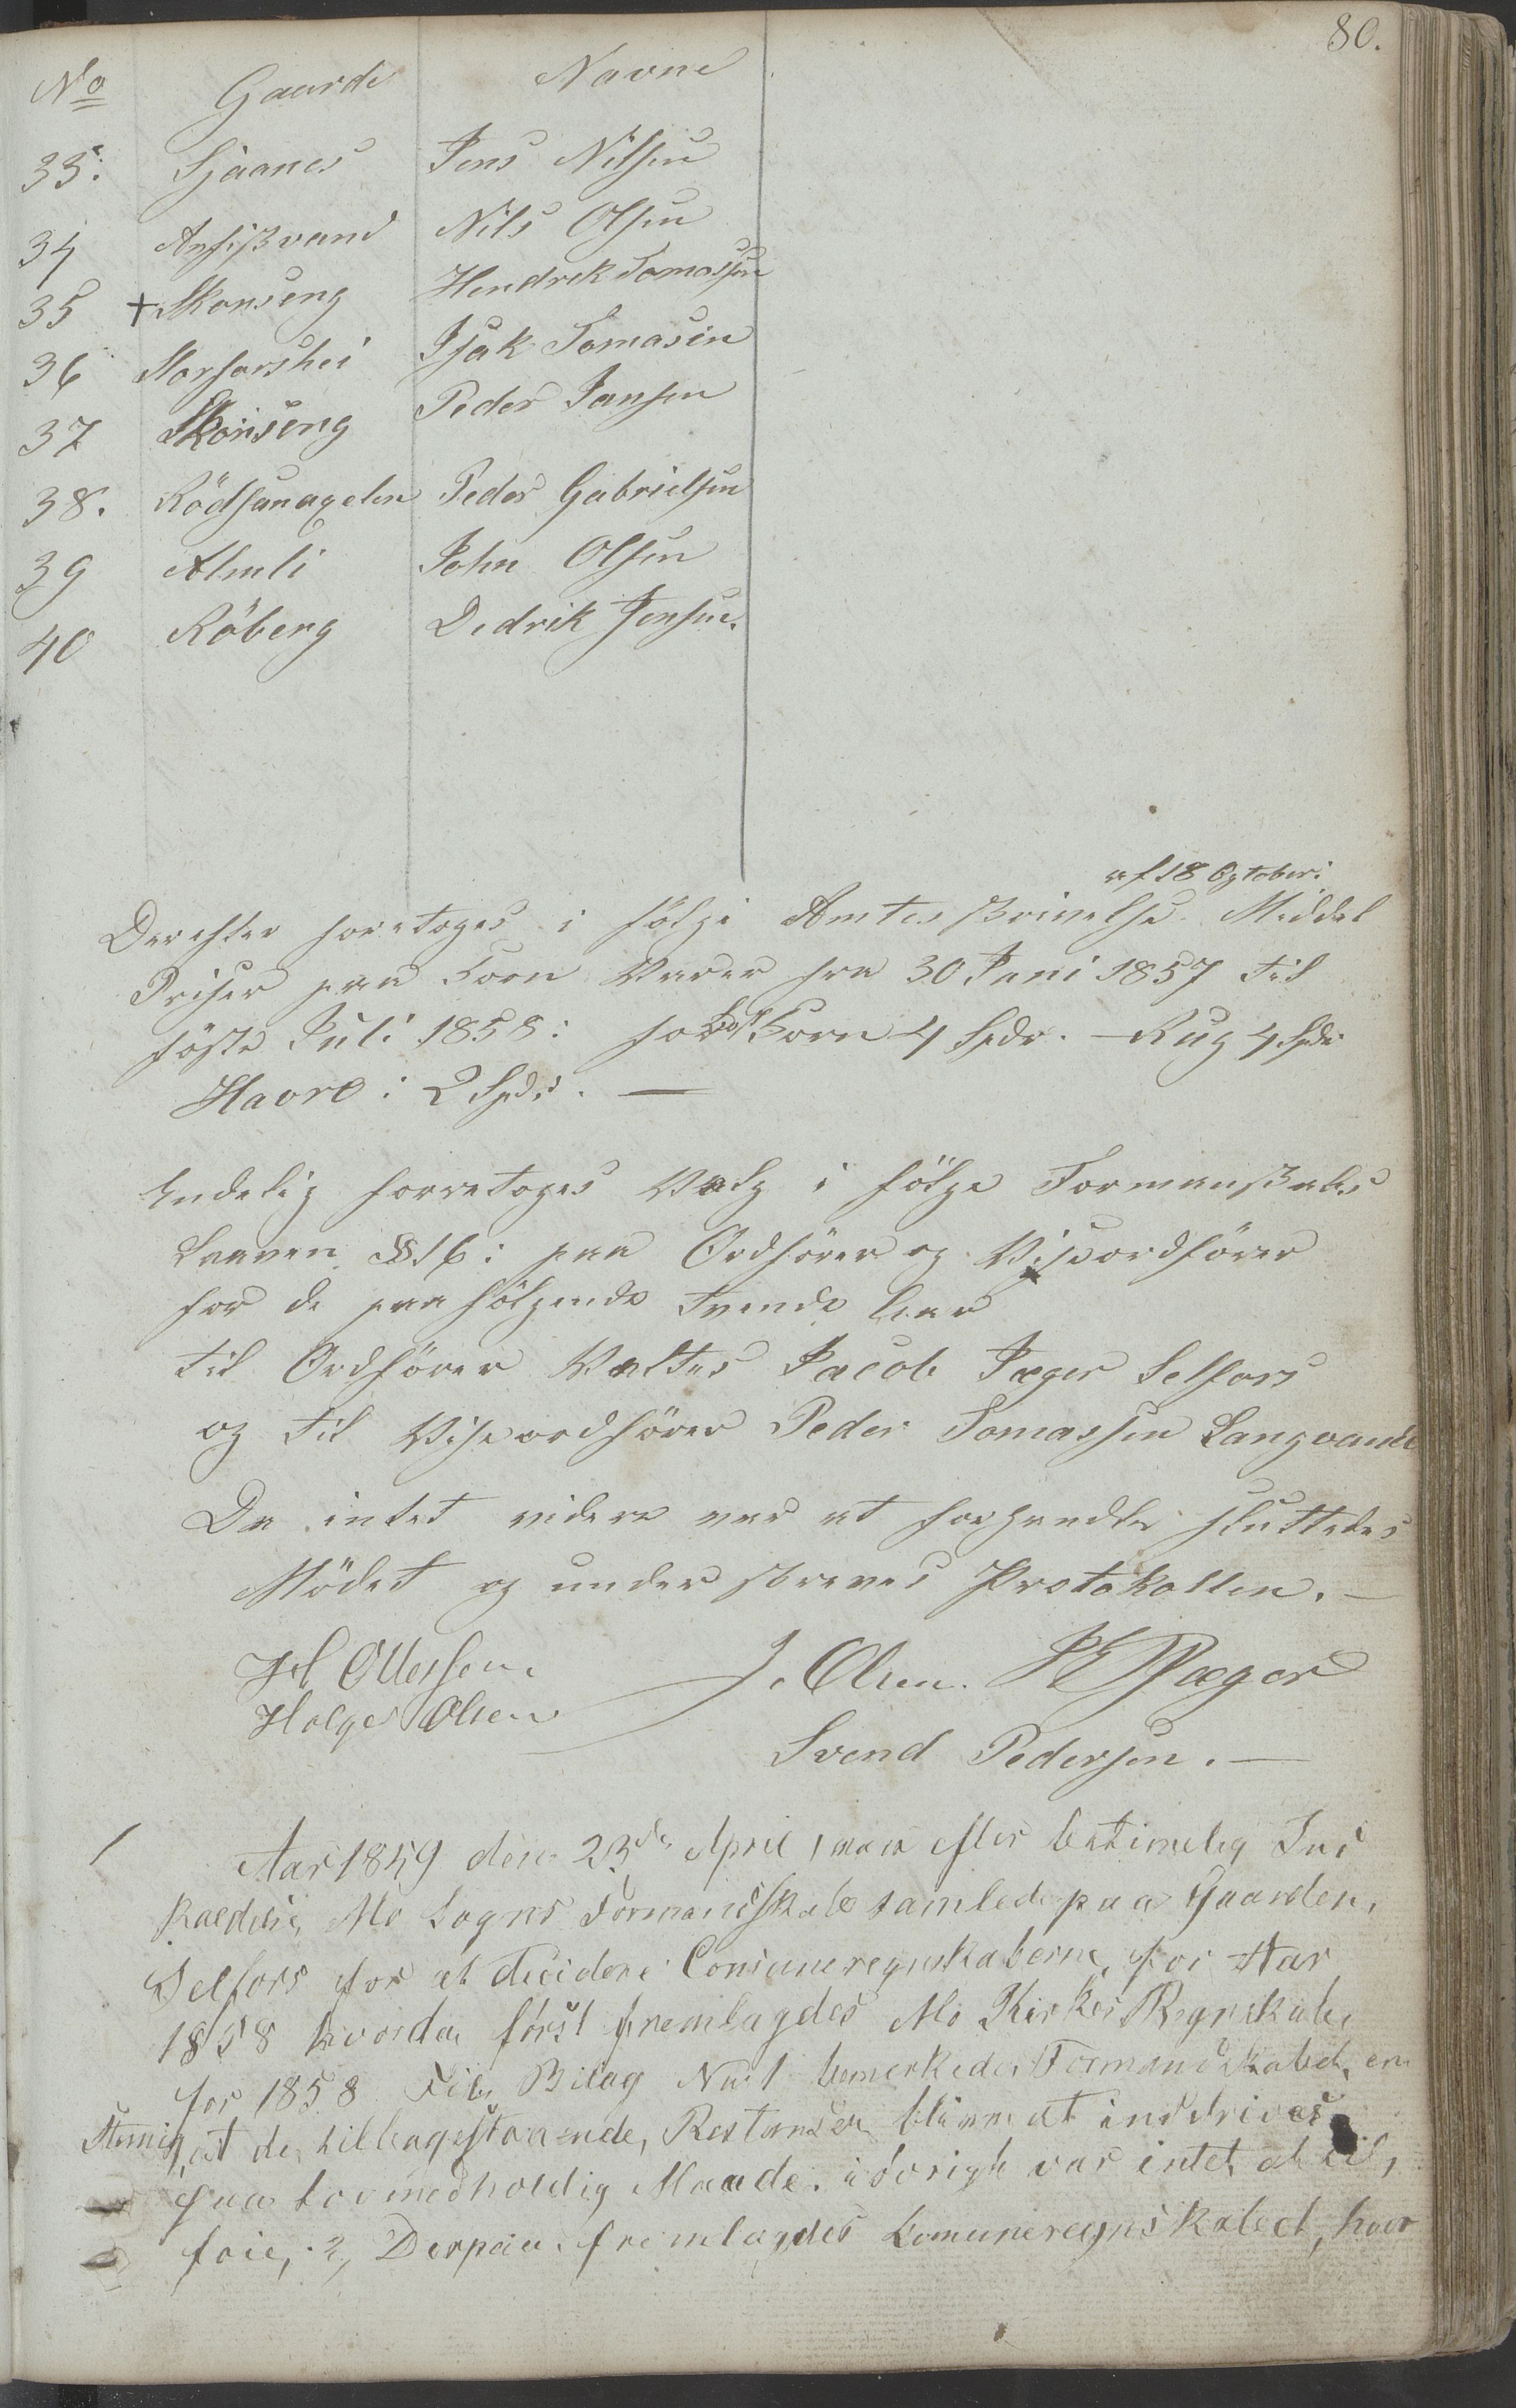 80.
No Gaarde Navne
33. Sjaanes Jens Nilsen
34 Ansisvand Nils Olsen
35 + Skonseng Hendrek Tomassen
36 Storforshei Isak Tomasen
37 Skonseng Peder Jansen
38. Rödsanagelen Peder Gabrielsen
39 Almli John Olsen
40 Röberg Dedrik Jensen.
af 18 Ogtober:
Derefter foretoges i følge Amtes skrivelse Middel
Priser paa Korn Varer fra 30 Juni 1857 til
föste Juli 1858: for Korn 4 Spdr. – Rug 4 Spdr
Havre: 2 Spdr. —
Endelig forretoges Valg i fölge Formanskabs
Laaven §16: paa Ordförer og Viseordförer
for de paa fölgende tvende Aar
til Ordförer Valtes Jacob Jæger Selfors
og til Viseordförer Peder Tomassen Langvand
Da intet videre var at forhandle sluttedes
Mödet og under skreves Protokollen. —
H Ottessen. J. Olsen. Jæger
Holge Olsen
Svend Pedersen. —
1 Aar 1859 den 23de April var efter betimelig Ind
kaldelse Mo Sogns Formandskab samlede paa Gaarden,
Selfors for at decidere Comuneregnskaberne, for Aar
1858 hvorda först fremlagdes Mo Kirkes Regnskab,
for 1858 Til Bilag No 1 bemerkede Formandskabet, en
stemig, at de tilbagestaaende, Restanser blive at inddrives
paa lovmedholdig Maade. idövrigt var intet at til,
föie, 2, Derpaa fremlagdes Comuneregnskabet, hvor